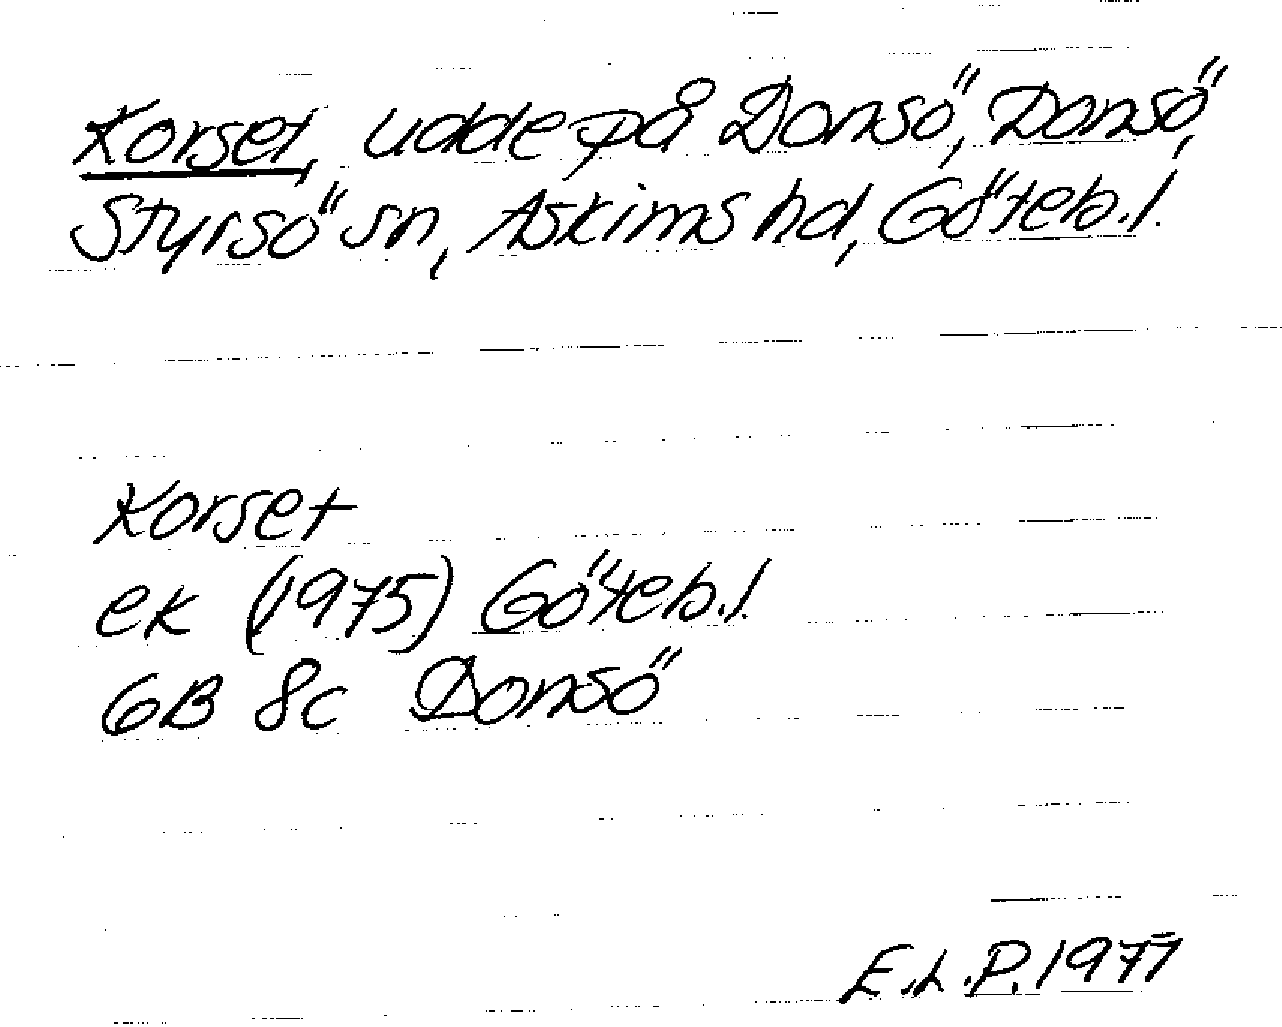 Korset, udde på Donsö, Donsö,
Styrsö sn, Askims hd, Göteb.l.
Korset
ek (1975) Göteb.l.
6B 8c Donsö
E.L.P. 1977